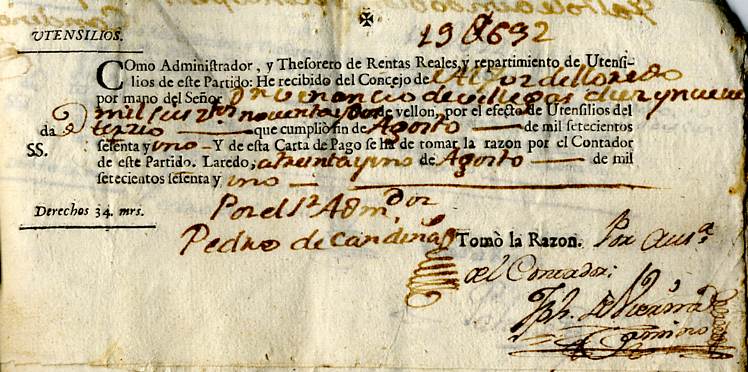 UTENSILIOS.
19U692
COmo Administrador, y Thesorero de Rentas Reales, y repartimiento de Utensi-
lios de este Partido: He recibido del Concejo de
por mano del Señor Dn Venancio de Villegas diez y nueve
mil noventa y dos de vellon, por el efecto de Utensilios del
da terzio que cumpliò fin de Agosto de mil setecientos
SS. sesenta y uno - Y de esta Carta de Pago se ha de tomar la razon por el Contador
de este Partido. Laredo, a treinta y uno de Agosto de mil
setecientos sesenta y uno
Derechos 34. mrs.
Por el Sr Admor
Pedro de Candina
Tomò la Razon. Por ausa
del Contador:
Jph.